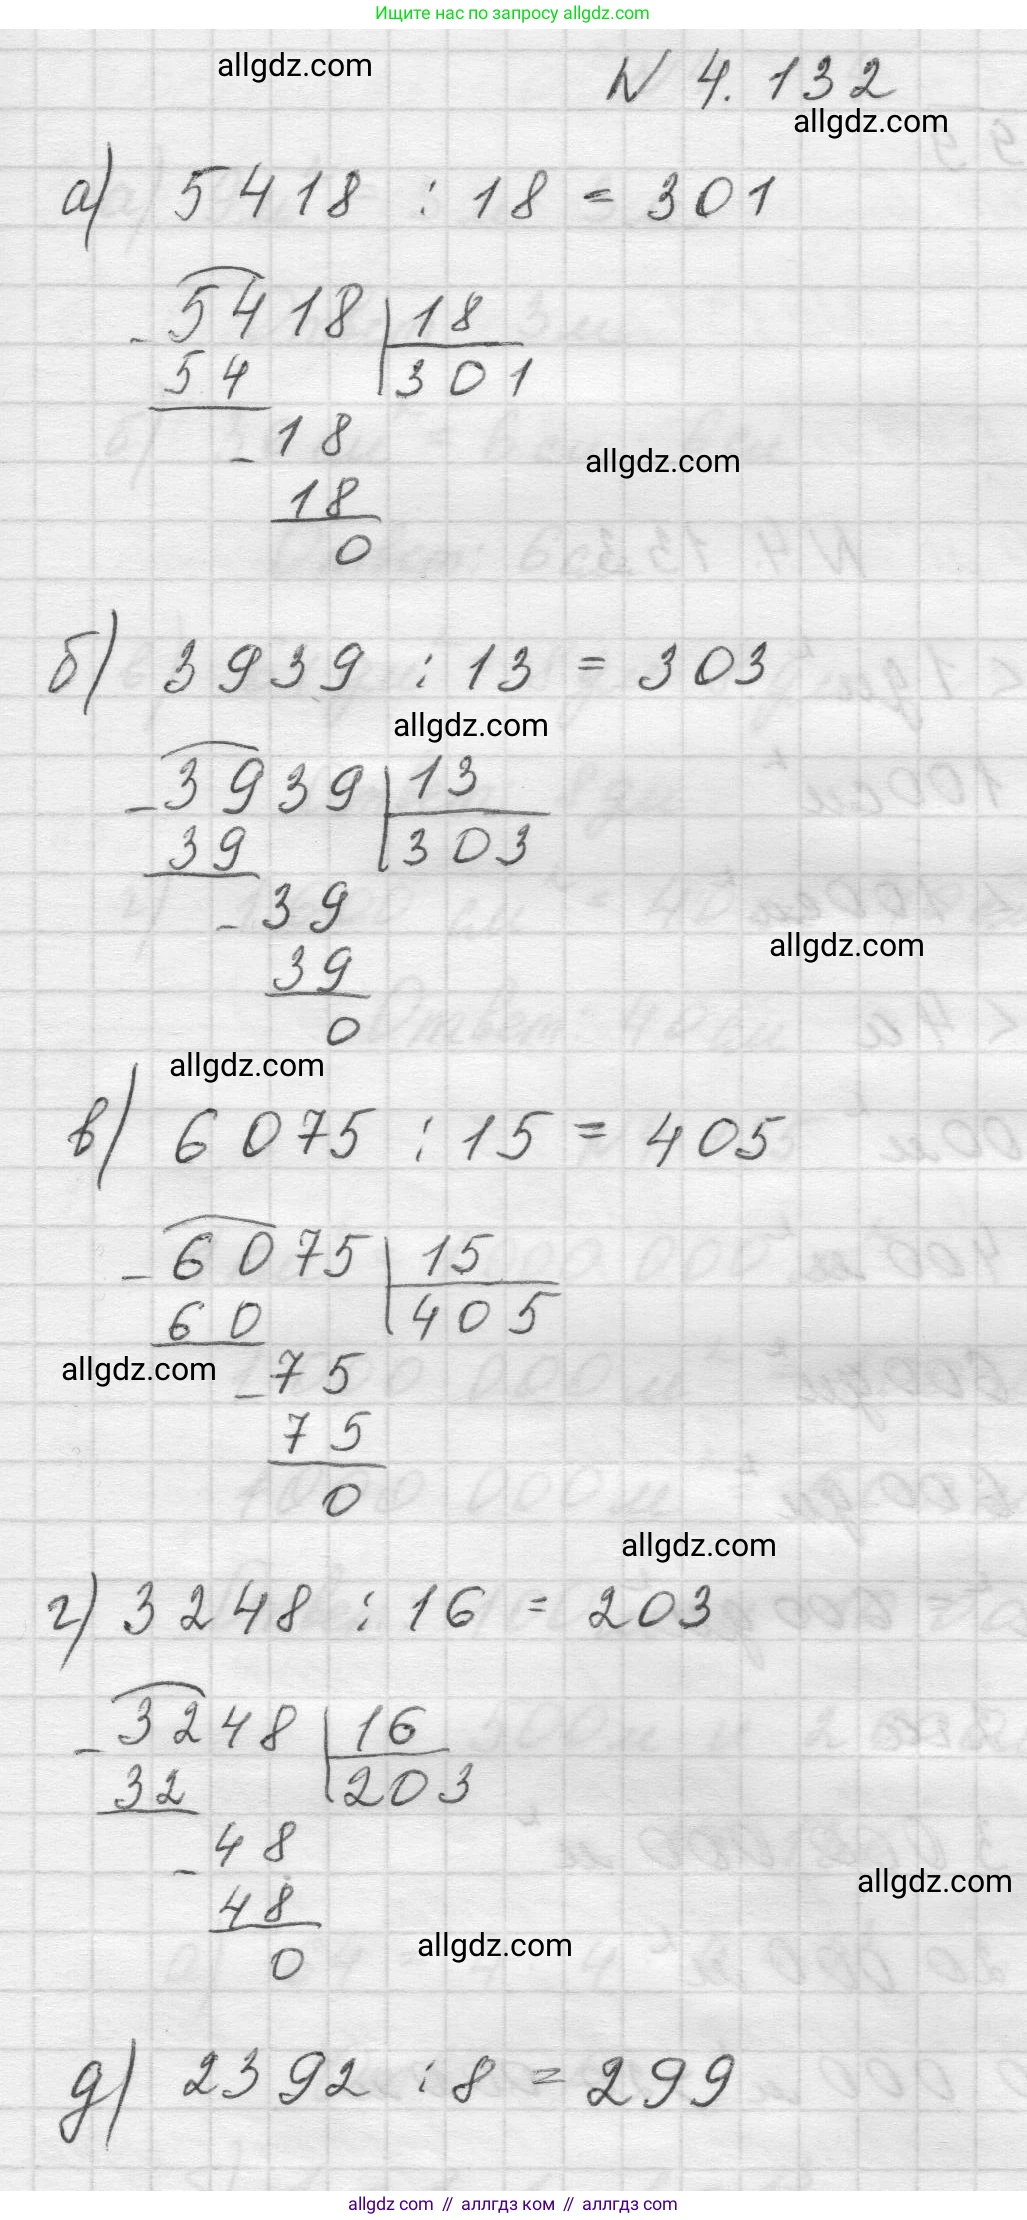 Ищите нас по запросу allgdz.com
allgdz.com
N 4.132
allgdz.com
а) 5418 : 18 = 301
- 5418 | 18
54 301
- 18
allgdz.com
18
0
б) 3939 : 13 = 303
allgdz.com
- 3939 | 13
39 303
- 39
allgdz.com
39
0
allgdz.com
в) 6075 : 15 = 405
- 6075 | 15
60 405
allgdz.com
- 75
75
0
allgdz.com
г) 3248 : 16 = 203
- 3248 | 16
32 203
- 48
allgdz.com
48
allgdz.com
0
д) 2392 : 8 = 299
allgdz com // аллгдз ком // аллгдз com